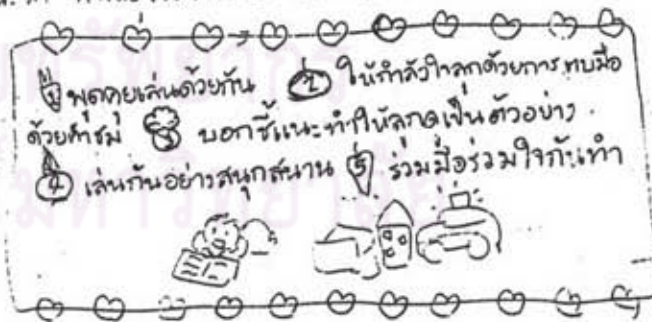 ① พูดคุยเล่นด้วยกัน ② ให้กำลังใจลูกด้วยการตบมือ
ด้วยคำชม ③ บอกชี้แนะทำให้ลูกดูเป็นตัวอย่าง
④ เล่นกันอย่างสนุกสนาน ⑤ ร่วมมือร่วมใจกันทำ